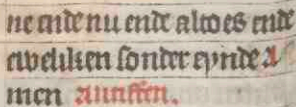 ne ende nu ende altoes ende
eweliken sonder eynde A
men